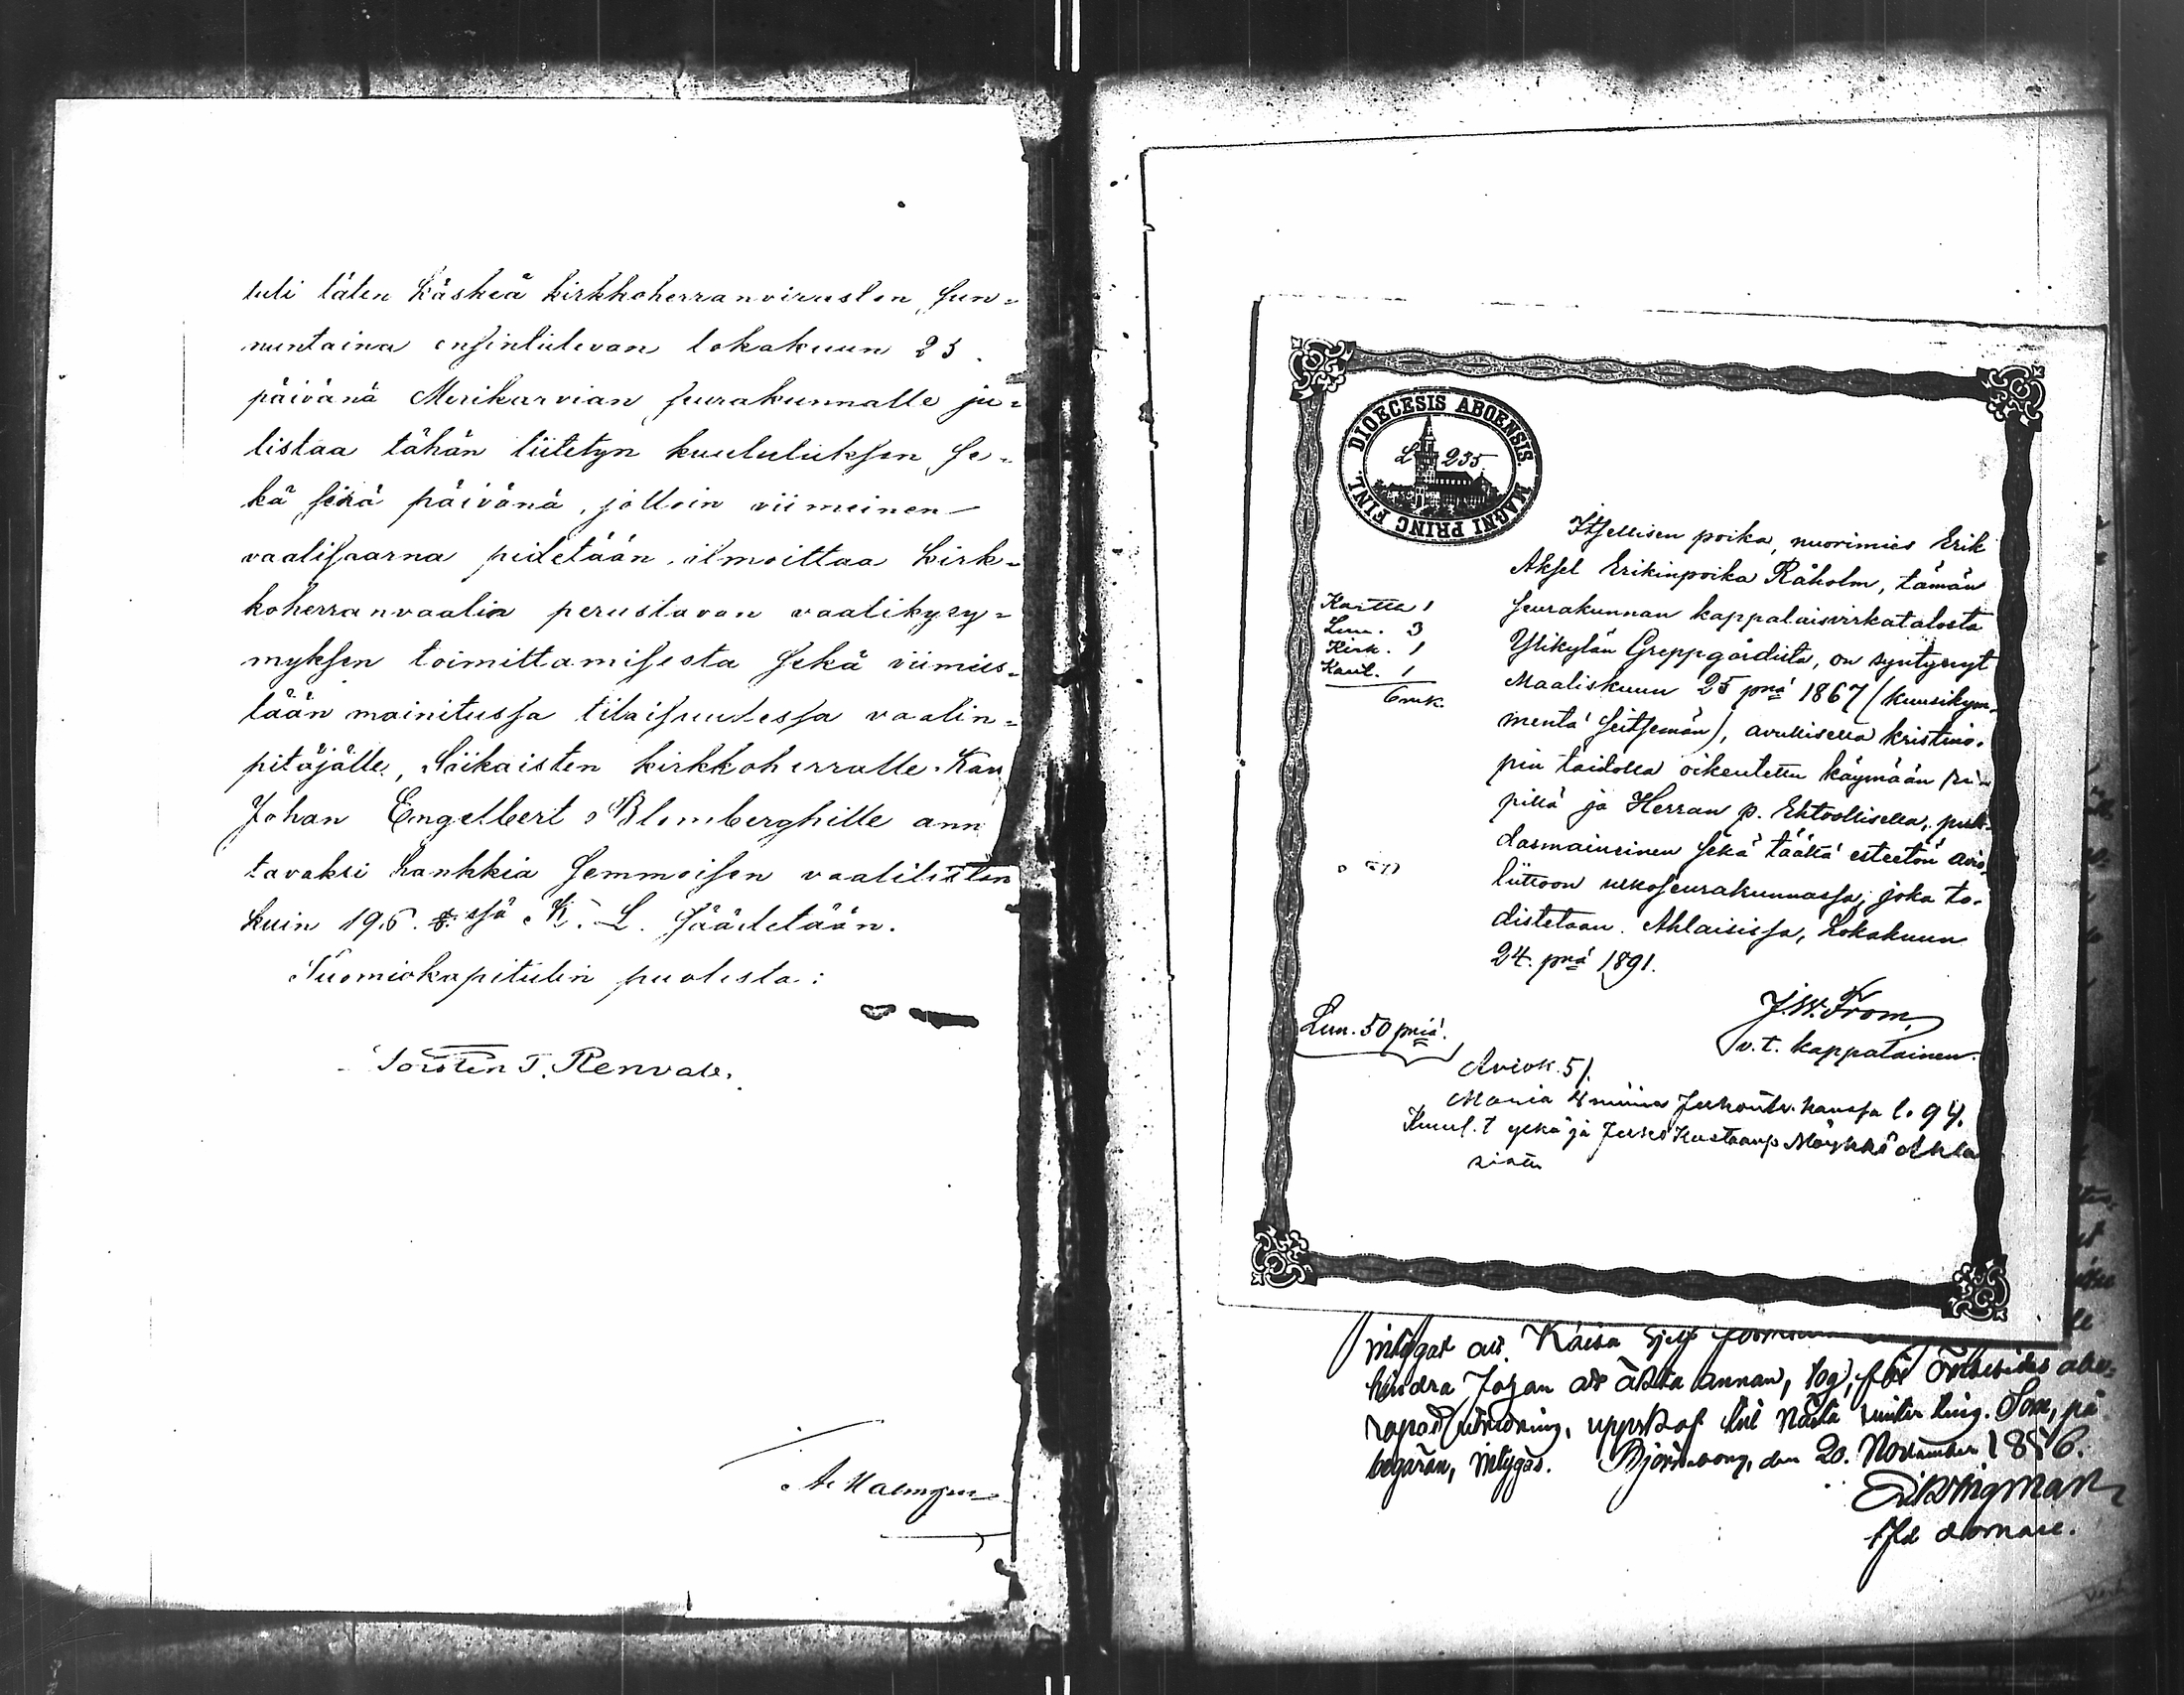 tuli täten käskeä kirkkoherranviraston, sun-
nuntaina ensintulevan lokakuun 25.
päivänä Merikarvian seurakunnalle ju-
listaa tähän liitetyn kuulutuksen se-
kä sinä päivänä, jolloin viimeinen
vaalisaarna pidetään, ilmoittaa kirk-
koherranvaalin perustavan vaalikysy-
myksen toimittamisesta sekä viimeis-
tään mainitussa tilaisuudessa vaalin-
pitäjälle, Siikaisten kirkkoherralle
Johan Engelbert Blomberghille
tavaksi hankkia semmoisen vaalilistan
kuin 195. §:ssä K. L. säädetään.
Tuomiokapitulin puolesta:
Torsten T. Renvall.
DIOECESIS ABOENSIS. MAGNI PRINC FINL.
L 235
Itsellisen poika, nuorimies Erik
Aksel Erikinpoika Råholm, tämän
seurakunnan kappalaisvirkatalosta
Ylikylän Greppgårdista, on syntynyt
Maaliskuun 25 pnä 1867 (kuusikym-
mentä seitsemän), avullisella kristino-
pin taidolla oikeutettu käymään ri-
pillä ja Herran p. Ehtoollisella, puh-
dasmaineinen sekä täältä esteetön avio-
liittoon ulkoseurakunnassa; joka to-
distetaan. Ahlaisissa, Lokakuun
24. pnä 1891.
J.W. From,
v.t. kappalainen.
Kartta 1
Lun. 3
Kirk. 1
Kuul. 1
6 mk.
Lun. 50 pniä.
Aviok. 51.
Maria
Kuul.
intygat att Kaisa
hindra Johan att äkta annan,
uppskof till nästa vinter ting. Som, på
begäran, intygas. Björneborg, den 20. November 1856.